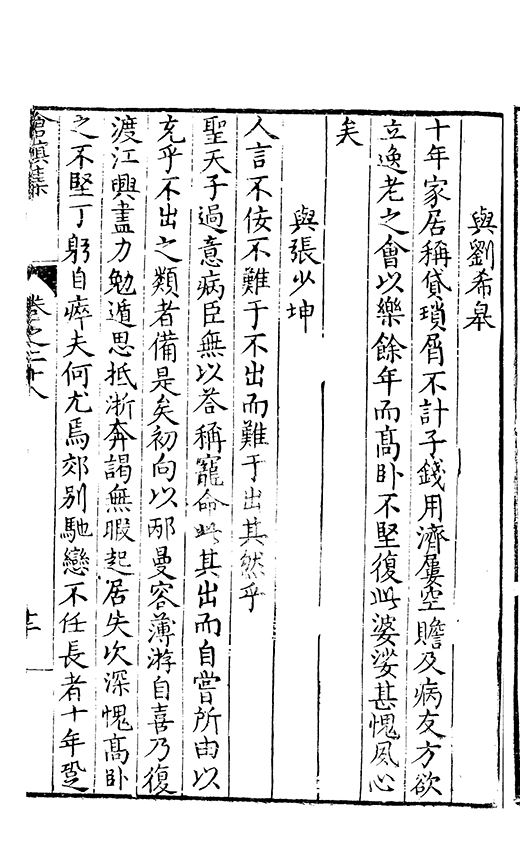 與劉希皋
十年家居稱貸瑣屑不計子錢用濟屢空贍及病友方欲
立逸老之會以樂餘年而高卧不堅復此婆娑甚愧夙心
矣
與張少坤
人言不佞不難于不出而難于出其然乎
聖天子過意病臣無以荅稱寵命此其出而自嘗所由以
充乎不出之類者備是矣初向以邴曼容薄游自喜乃復
渡江興盡力勉遁思抵浙奔謁無暇起居失次深愧高卧
之不堅丁躬自瘁夫何尤焉郊别馳戀不任長者十年
滄溟集
卷之二十八